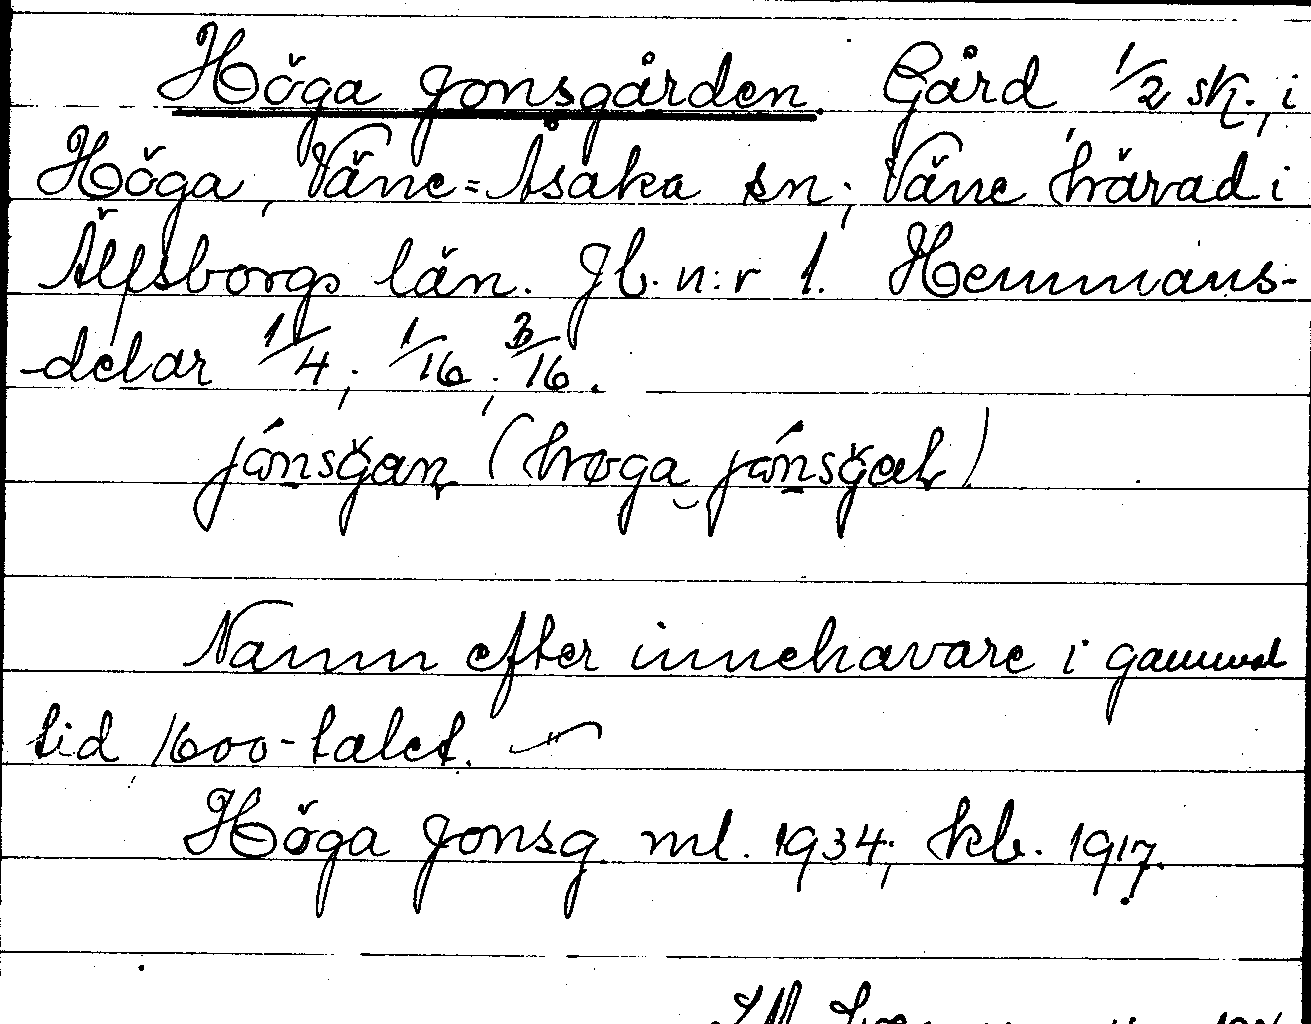 Höga Jonsgården. Gård 1/2 sk., i
Höga, Väne=Åsaka sn; Väne härad i
Älfsborgs län. Jb. n:r 1. Hemmans-
-delar 1/4; 1/16; 3/16.
jónsğan (høga jónsğak)
Namn efter innehavare i gammal
tid, 1600-talet.
Höga Jonsg. ml. 1934; kb. 1917.